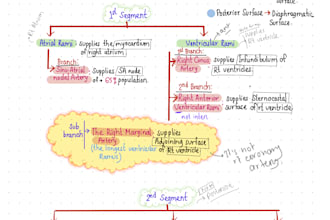 surface.
Posterior Surface → Diaphragmatic
Surface.
1st Segment
Atrial Rami Supplies the myocardium
of right atrium
Ventricular Rami
Branch:
Sinu-Atrial Supplies SA node
nodal Artery of • 65% population.
1st Branch:
Right Conus Supplies Infundibulum of
Artery Rt ventricles
2nd Branch:
Right Anterior Supplies Sternocostal
Ventricular Rami surface of Rt ventricles
Sub
branch
The Right Marginal supplies
Artery Adjoining surface
(the longest ventricular of Rt ventricle
Ramus)
It's not
rt coronary
artery
2nd Segment